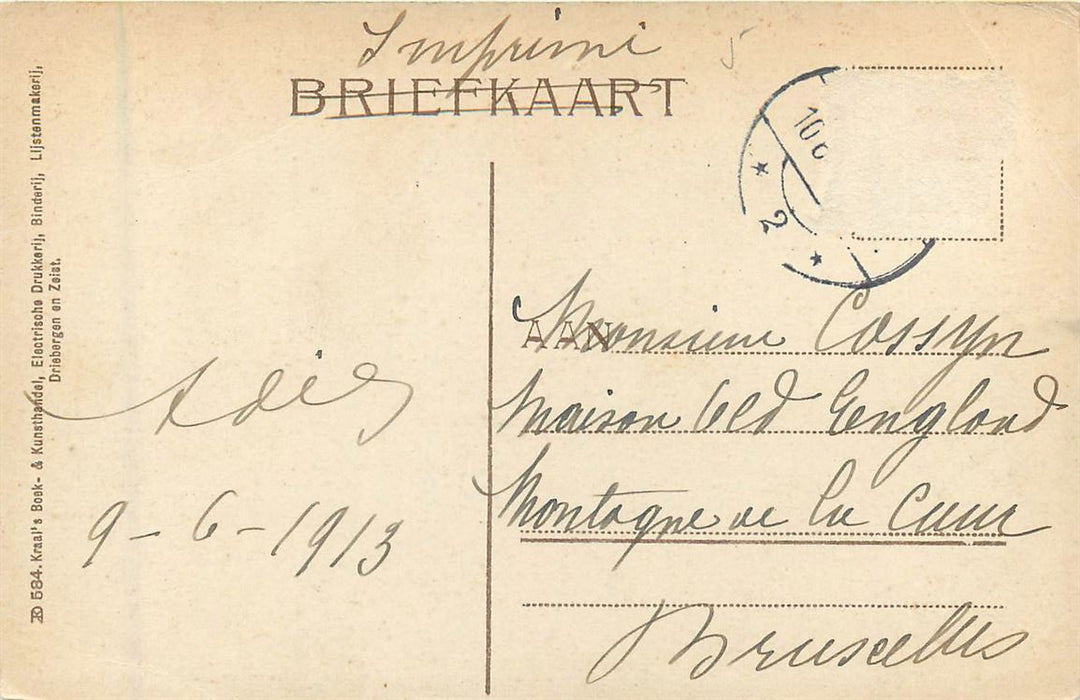 Imprimé
BRIEFKAART
5
10
2
AAN
Monsieur Cossyn
Maison Old England
Montagne de la Cour
Bruxelles
9-6-1913
584. Kraal's Boek- & Kunsthandel, Electrische Drukkerij, Binderij, Lijstenmakerij,
Driebergen en Zeist.